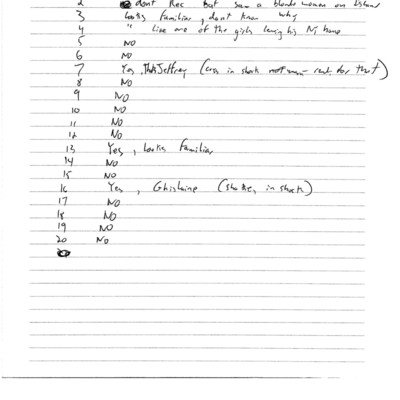 2 dont Rec But saw a blonde woman on Island
3 Looks Familiar, dont know why
4 " Like one of the girls leaving his NY home
5 NO
6 NO
7 Yes, Thats Jeffrey (was in shock not for that)
8 NO
9 NO
10 NO
11 NO
12 NO
13 Yes, Looks Familiar
14 NO
15 NO
16 Yes, Ghislaine (in shock)
17 NO
18 NO
19 NO
20 NO